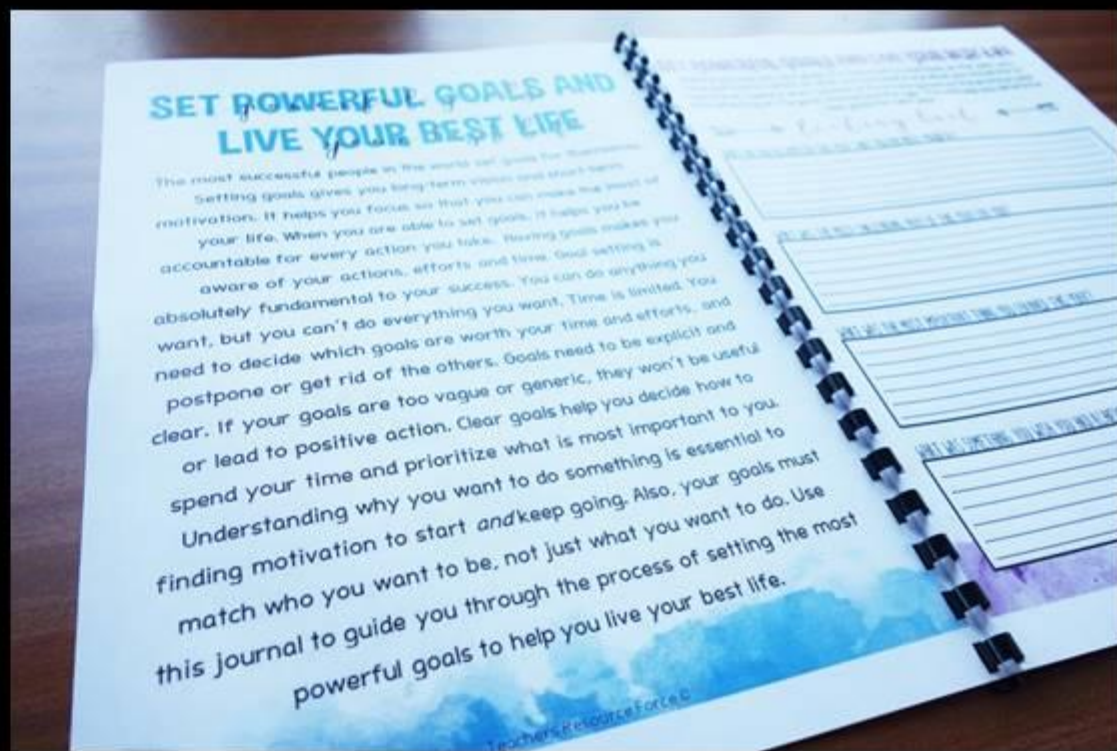 SET POWERFUL GOALS AND
LIVE YOUR BEST LIFE
The most successful people in the world set goals for themselves.
Setting goals gives you long-term vision and short-term
motivation. It helps you focus so that you can make the most of
your life. When you are able to set goals, it helps you be
accountable for every action you take. Having goals makes you
aware of your actions, efforts and time. Goal setting is
absolutely fundamental to your success. You can do anything you
want, but you can't do everything you want. Time is limited. You
need to decide which goals are worth your time and efforts, and
postpone or get rid of the others. Goals need to be explicit and
clear. If your goals are too vague or generic, they won't be useful
or lead to positive action. Clear goals help you decide how to
spend your time and prioritize what is most important to you.
Understanding why you want to do something is essential to
finding motivation to start and keep going. Also, your goals must
match who you want to be, not just what you want to do. Use
this journal to guide you through the process of setting the most
powerful goals to help you live your best life.
Teachers Resource Force ©
SET POWERFUL GOALS AND LIVE YOUR BEST LIFE
WHAT WAS THE MOST IMPORTANT THING YOU LEARNED THIS YEAR?
WHAT WAS SOMETHING YOU WISH YOU